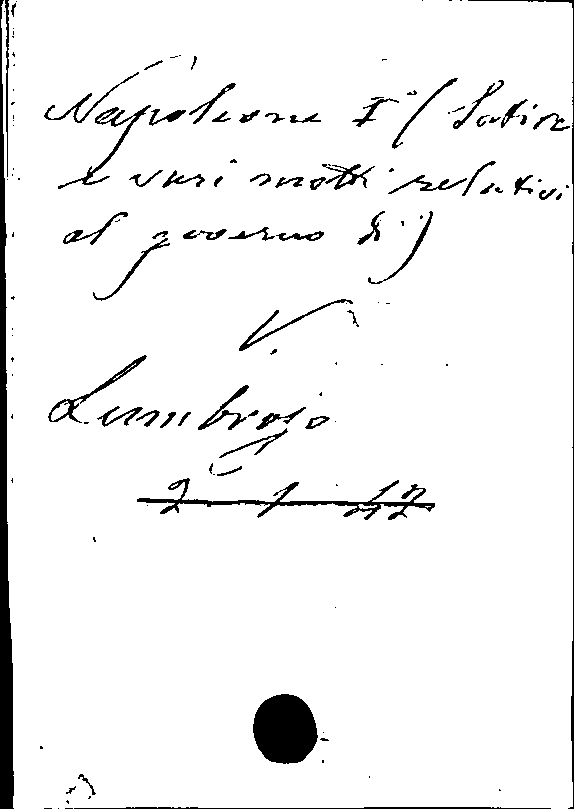 Napoleone I° (Satire
e vari motti relativi
al governo di)
V.
Lumbroso
2 1 42